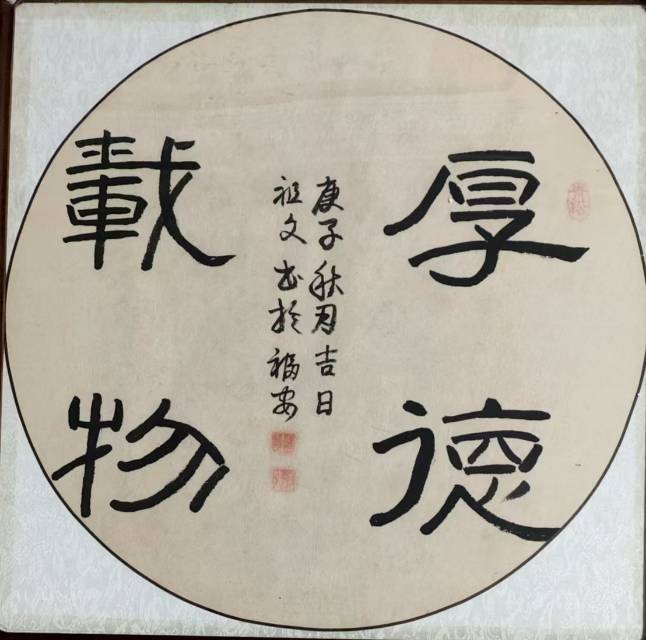 厚德
庚子秋月吉日
祖文书於福安
載物